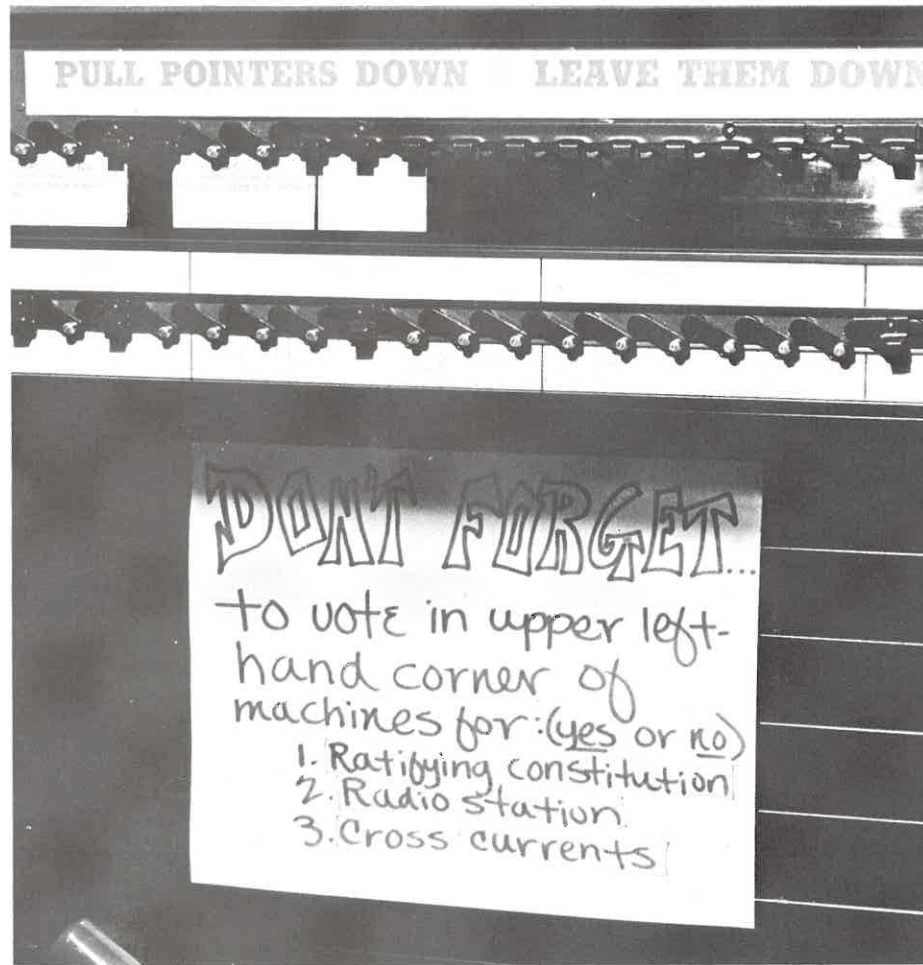 PULL POINTERS DOWN LEAVE THEM DOWN
DON'T FORGET...
to vote in upper left-
hand corner of
machines for:(yes or no)
1. Ratifying constitution
2. Radio station
3. Cross currents